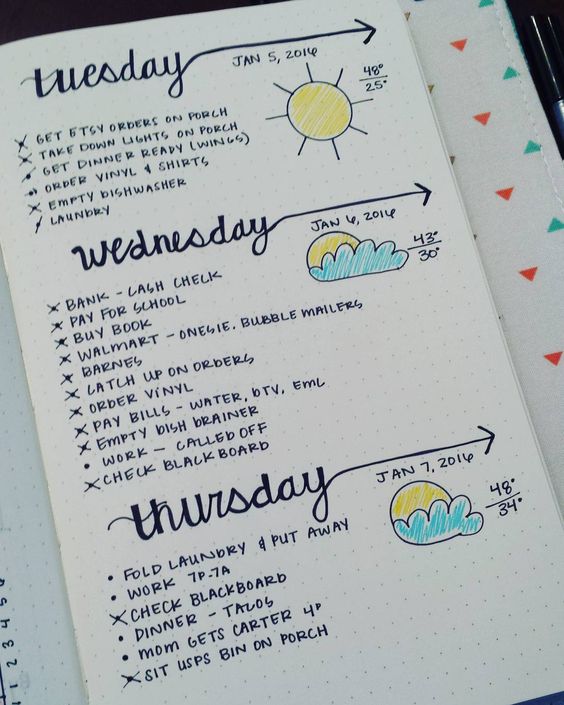 tuesday
JAN 5, 2016
48°
25°
GET ETSY ORDERS ON PORCH
TAKE DOWN LIGHTS ON PORCH
GET DINNER READY (WINGS)
ORDER VINYL & SHIRTS
EMPTY DISHWASHER
LAUNDRY
wednesday
JAN 6, 2016
43°
30°
BANK - CASH CHECK
PAY FOR SCHOOL
BUY BOOK
WALMART - ONESIE, BUBBLE MAILERS
BARNES
CATCH UP ON ORDERS
ORDER VINYL
PAY BILLS - WATER, DTV, EML
EMPTY DISH DRAINER
WORK - CALLED OFF
CHECK BLACKBOARD
thursday
JAN 7, 2016
48°
34°
FOLD LAUNDRY & PUT AWAY
WORK 7P-7A
CHECK BLACKBOARD
DINNER - TACOS
MOM GETS CARTER 4P
SIT USPS BIN ON PORCH